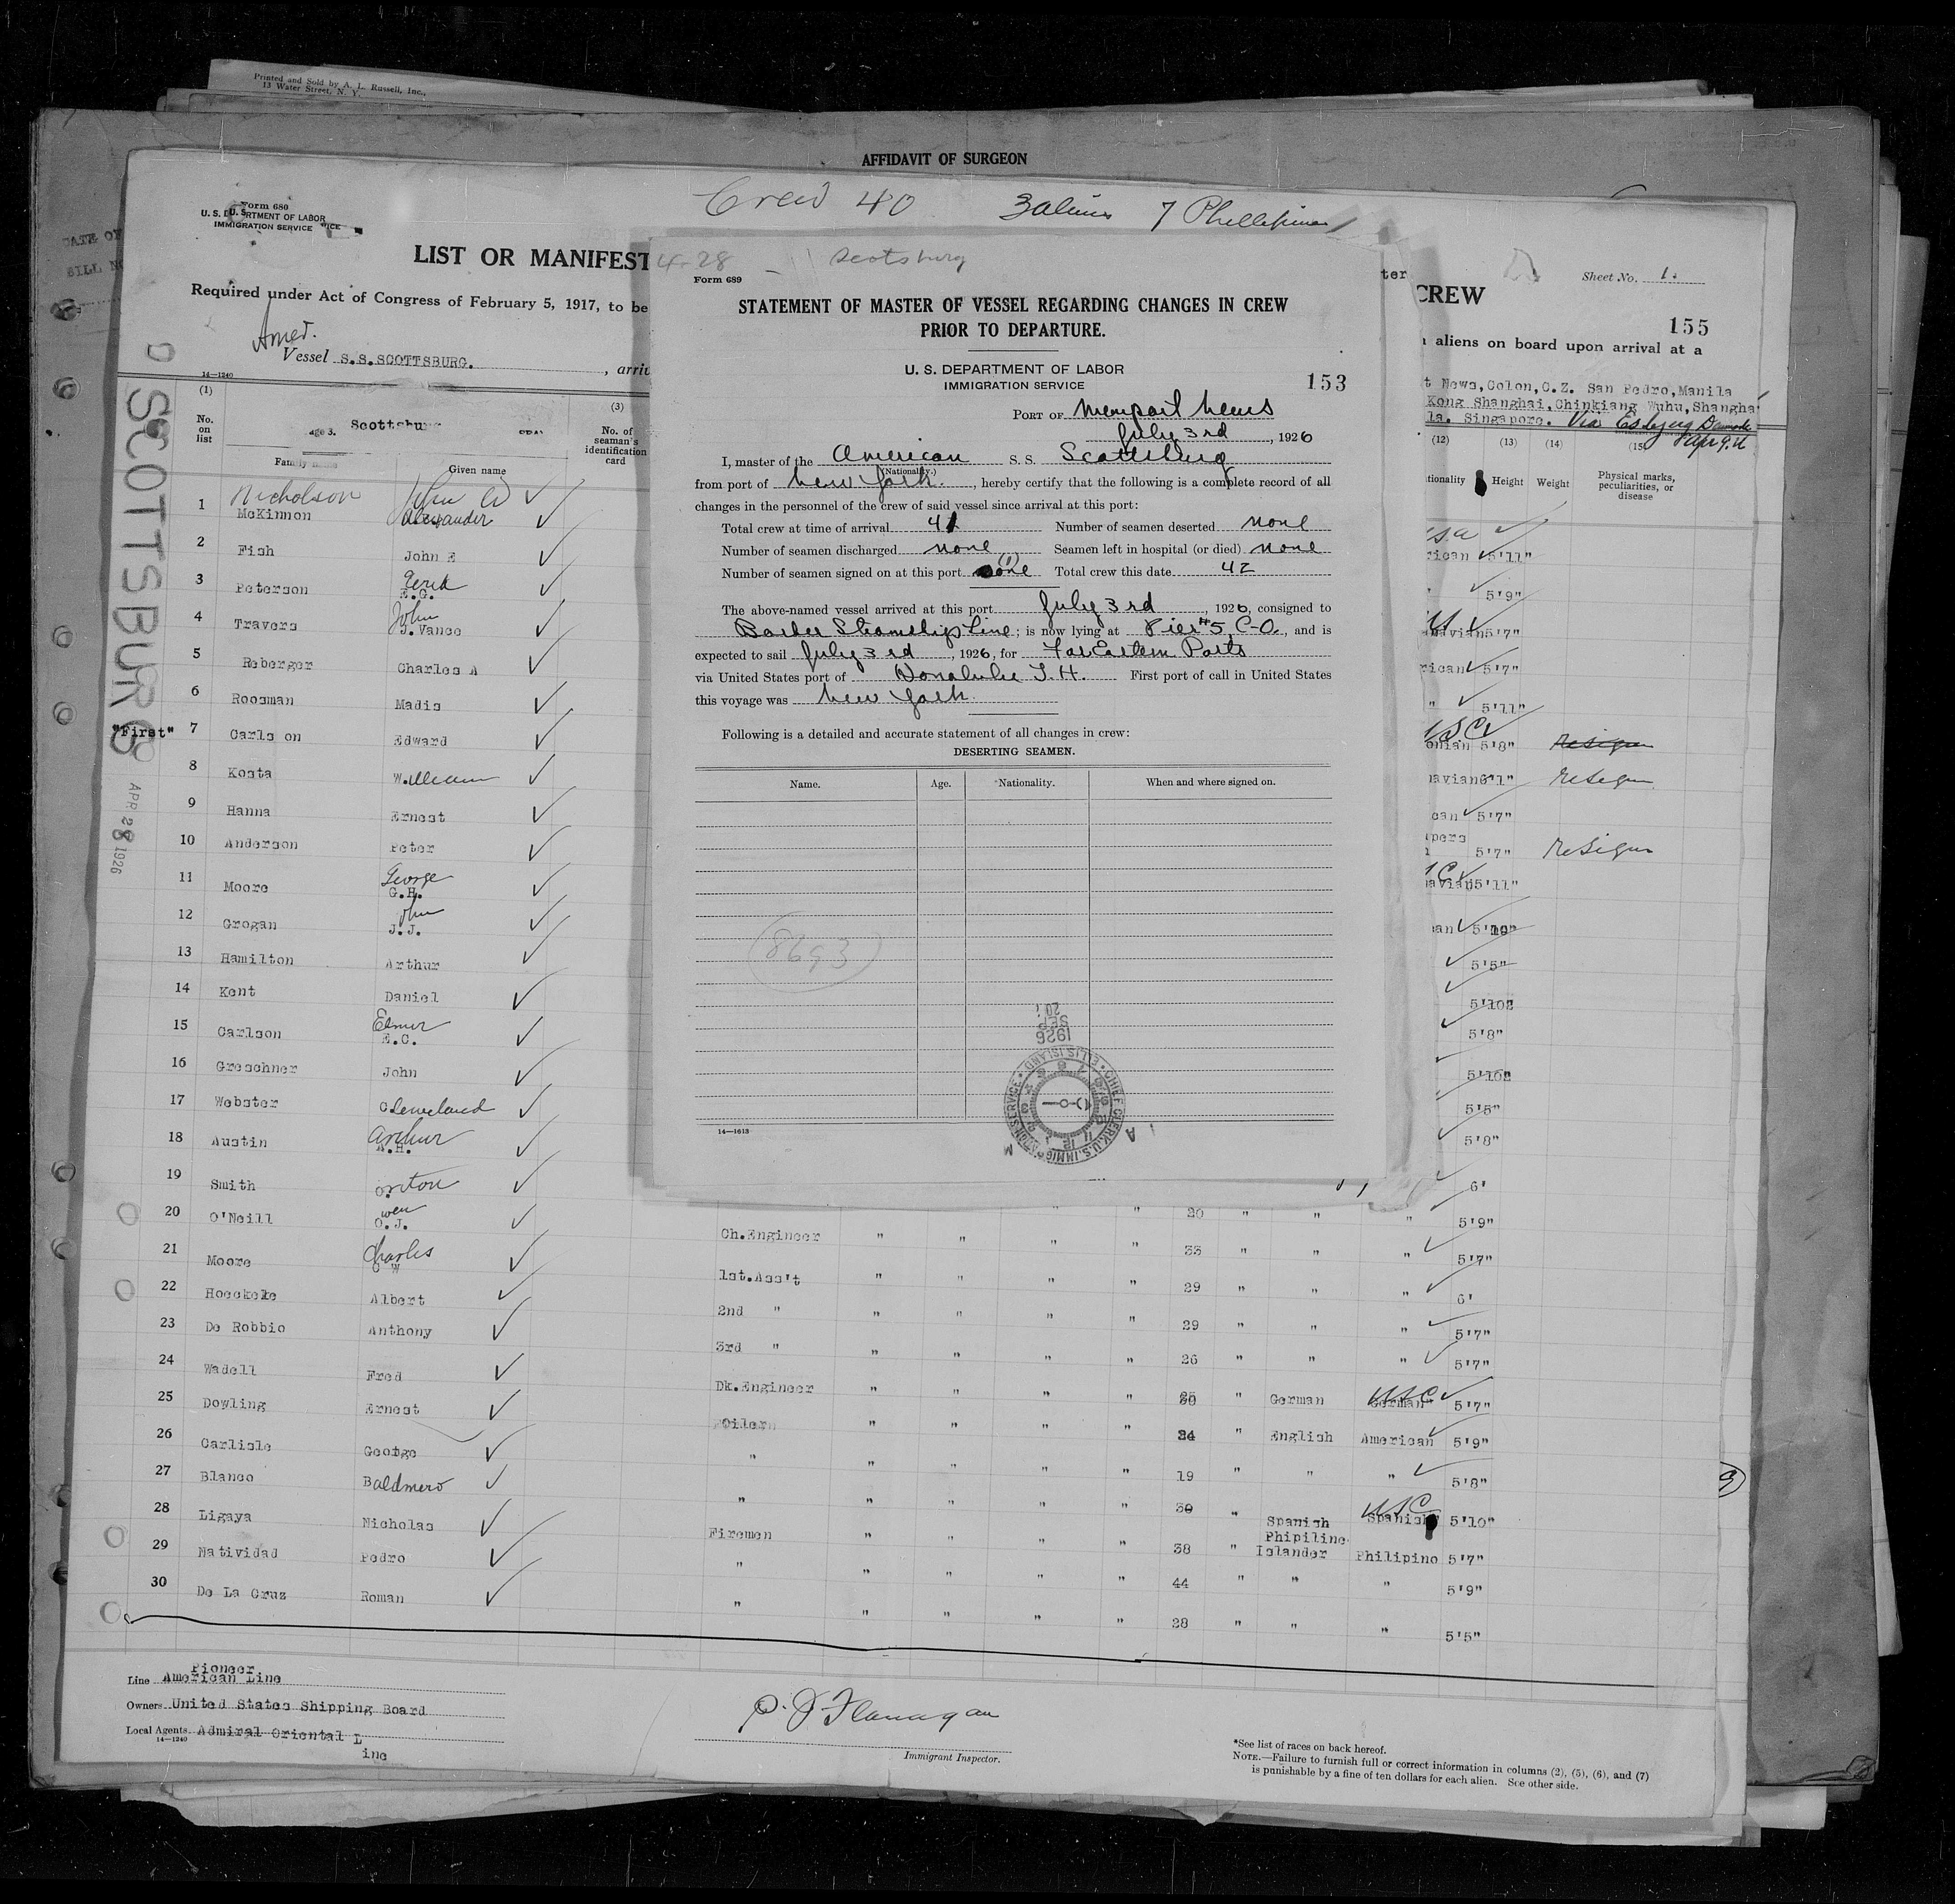 Printed and Sold by A. L. Russell, Inc.,
13 Water Street, N. Y.
AFFIDAVIT OF SURGEON
Crew 40 3 aliens 7 Phillipinos
Form 680
U. S. DEPARTMENT OF LABOR
IMMIGRATION SERVICE
LIST OR MANIFEST
Required under Act of Congress of February 5, 1917, to be
Amer.
Vessel S.S.SCOTTSBURG. , arri
14—1240
SCOTTSBURG
APR 28 1926
(1)
No. on list
Scottsburg
Family name
Given name
(3)
No. of seaman's identification card
Nicholson John W
1 McKinnon Alexander
2 Fish John E
3 Peterson Gerik E.G.
4 Travers John J.Vance
5 Reberger Charles A
6 Roosman Madis
"First" 7 Carlson Edward
8 Kosta William
9 Hanna Ernest
10 Anderson Peter
11 Moore George G.H.
12 Grogan John J.J.
13 Hamilton Arthur
14 Kent Daniel
15 Carlson Elmer E.C.
16 Greschner John
17 Webster Cleveland
18 Austin Arthur A.H.
19 Smith Orton
20 O'Neill Owen O.J. 20 " " " 5'9"
21 Moore Charles C W Ch.Engineer " " " " 33 " " " 5'7"
22 Hoeckele Albert 1st.Ass't " " " " 29 " " " 6'
23 De Robbio Anthony 2nd " " " " " 29 " " " 5'7"
24 Wadell Fred 3rd " " " " " 26 " " " 5'7"
25 Dowling Ernest Dk.Engineer " " " " " German USC German 5'7"
26 Carlisle George Oilers " " " " 24 " English American 5'9"
27 Blanco Baldmero " " " " " 19 " " " 5'8"
28 Ligaya Nicholas " " " " " 30 " Spanish USC Spanish 5'10"
29 Natividad Pedro Firemen " " " " 38 " Phipiline Islander Philipino 5'7"
30 De La Cruz Roman " " " " " 44 " " " 5'9"
" " " " " 28 " " " 5'5"
Pioneer
Line American Line
Owners United States Shipping Board
Local Agents Admiral Oriental L
ine
14—1240
Immigrant Inspector.
*See list of races on back hereof.
NOTE.—Failure to furnish full or correct information in columns (2), (5), (6), and (7)
is punishable by a fine of ten dollars for each alien. See other side.
4-28 Scotsburg
Form 689
STATEMENT OF MASTER OF VESSEL REGARDING CHANGES IN CREW
PRIOR TO DEPARTURE.
U. S. DEPARTMENT OF LABOR
IMMIGRATION SERVICE
153
PORT OF Newport News
July 3rd, 1926
I, master of the American S. S. Scottsburg
(Nationality.)
from port of New York, hereby certify that the following is a complete record of all
changes in the personnel of the crew of said vessel since arrival at this port:
Total crew at time of arrival 41 Number of seamen deserted none
Number of seamen discharged none Seamen left in hospital (or died) none
Number of seamen signed on at this port one (1) Total crew this date 42
The above-named vessel arrived at this port July 3rd, 1926, consigned to
Barber Steamship Line; is now lying at Pier #5 C-O., and is
expected to sail July 3rd, 1926, for Far Eastern Ports
via United States port of Honolulu T.H. First port of call in United States
this voyage was New York.
Following is a detailed and accurate statement of all changes in crew:
DESERTING SEAMEN.
Name. Age. Nationality. When and where signed on.
8693
1926 SEP 20
CHIEF CLERK, U.S. IMMIGRATION SERVICE ELLIS ISLAND
14—1613
ter
CREW
Sheet No. 1.
155
aliens on board upon arrival at a
t News,Colon,C.Z. San Pedro,Manila
Kong Shanghai,Chinkiang Wuhu,Shangha
la. Singapore. Via Esbjerg Denmark
Apr 9.26
(12) (13) (14) (15)
tionality Height Weight Physical marks, peculiarities, or disease
rican 5'11"
" 5'9"
navian 5'7"
rican 5'7"
" 5'11"
USC
onian 5'8" resign
navian 6'1" resign
can 5'7"
5'7" resign
avian 5'11"
an 5'10"
5'5"
5'10½
5'8"
5'10½
5'5"
5'8"
6'